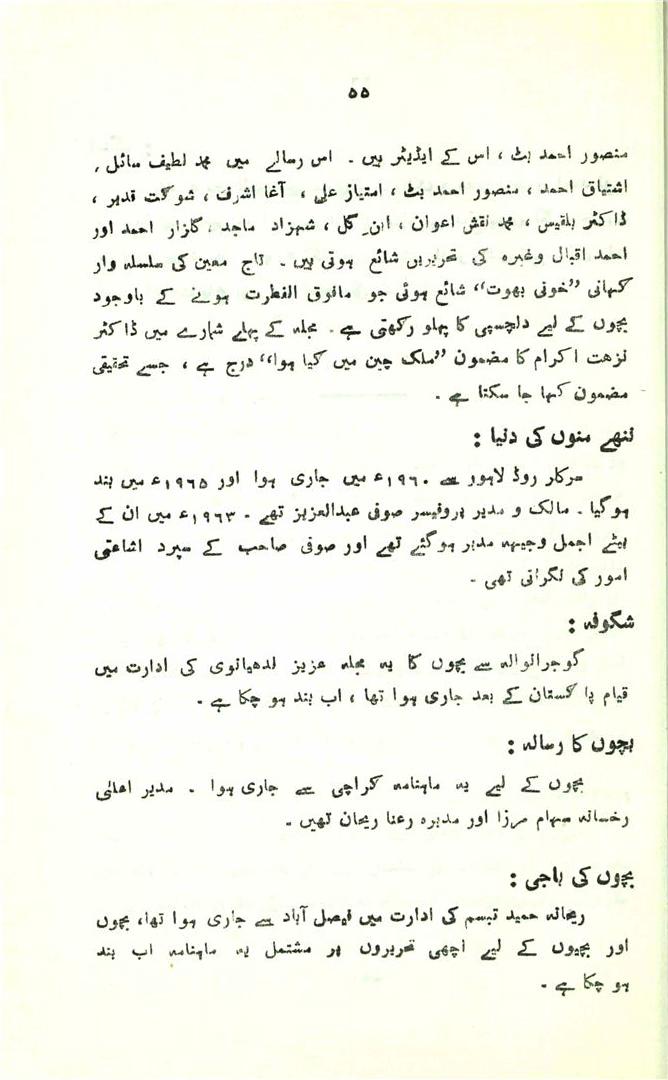 ۵۵
منصور احمد بٹ ، اس کے ایڈیٹر ہیں ۔ اس رسالے میں محمد لطیف سائل ،
اشتیاق احمد ، منصور احمد بٹ ، امتیاز علی ، آغا اشرف ، شوکت قدیر ،
ڈاکٹر بلقیس ، محمد نقش اعوان ، ابنِ گل ، شہزاد ماجد ، گلزار احمد اور
احمد اقبال وغیرہ کی تحریریں شائع ہوتی ہیں ۔ تاج معین کی سلسلہ وار
کہانی ”خونی بھوت“ شائع ہوئی جو مافوق الفطرت ہونے کے باوجود
بچوں کے لیے دلچسپی کا پہلو رکھتی ہے ۔ مجلہ کے پہلے شمارے میں ڈاکٹر
نزہت اکرام کا مضمون ”ملک چین میں کیا ہوا“ درج ہے ، جسے تحقیقی
مضمون کہا جا سکتا ہے ۔
ننھے منوں کی دنیا :
سرکلر روڈ لاہور سے ۱۹٦۰ء میں جاری ہوا اور ۱۹٦۵ء میں بند
ہوگیا ۔ مالک و مدیر پروفیسر صوفی عبدالعزیز تھے ۔ ۱۹٦۳ء میں ان کے
بیٹے اجمل وجیہہ مدیر ہوگئے تھے اور صوفی صاحب کے سپرد اشاعتی
امور کی نگرانی تھی ۔
شگوفہ :
گوجرانوالہ سے بچوں کا یہ مجلہ عزیز لدھیانوی کی ادارت میں
قیام پاکستان کے بعد جاری ہوا تھا ، اب بند ہو چکا ہے ۔
بچوں کا رسالہ :
بچوں کے لیے یہ ماہنامہ کراچی سے جاری ہوا ۔ مدیر اعلیٰ
رخسانہ سہام مرزا اور مدیرہ رعنا ریحان تھیں ۔
بچوں کی باجی :
ریحانہ حمید تبسم کی ادارت میں فیصل آباد سے جاری ہوا تھا، بچوں
اور بچیوں کے لیے اچھی تحریروں پر مشتمل یہ ماہنامہ اب بند
ہو چکا ہے ۔